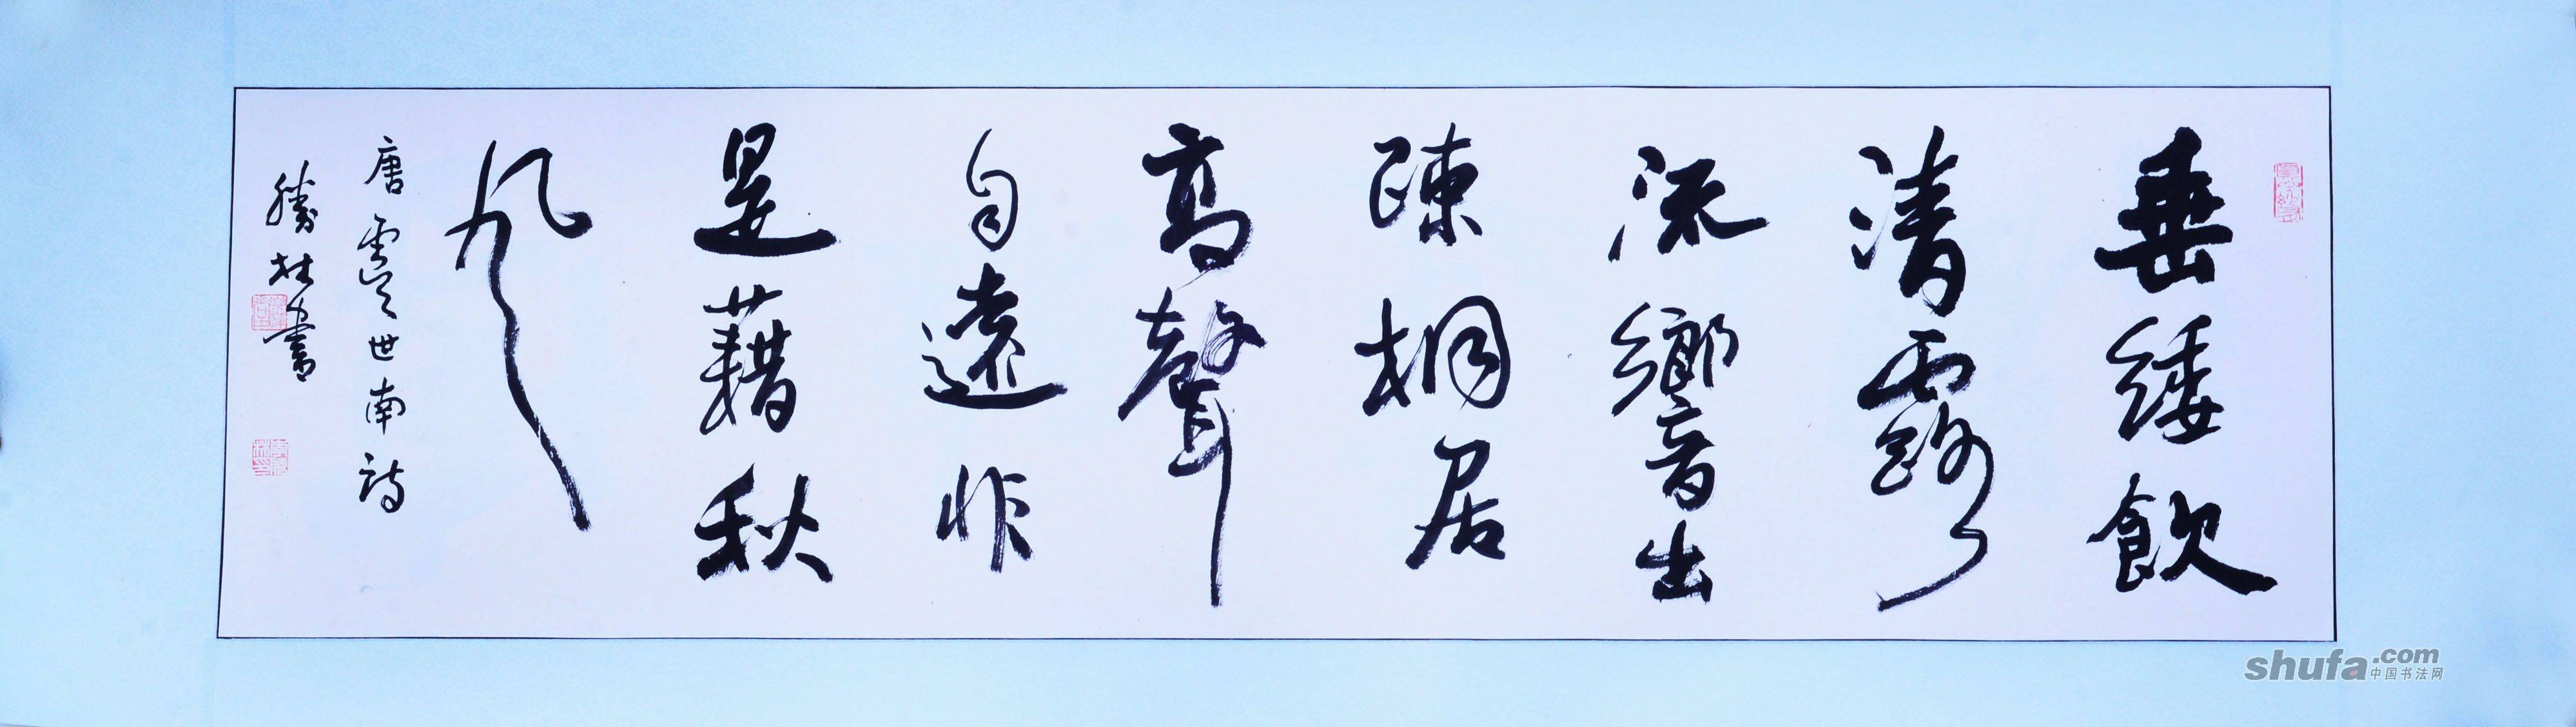 垂緌飲
清露
流響出
疎桐居
高聲
自遠非
是藉秋
風
唐虞世南詩
勝林書
shufa.com
中国书法网